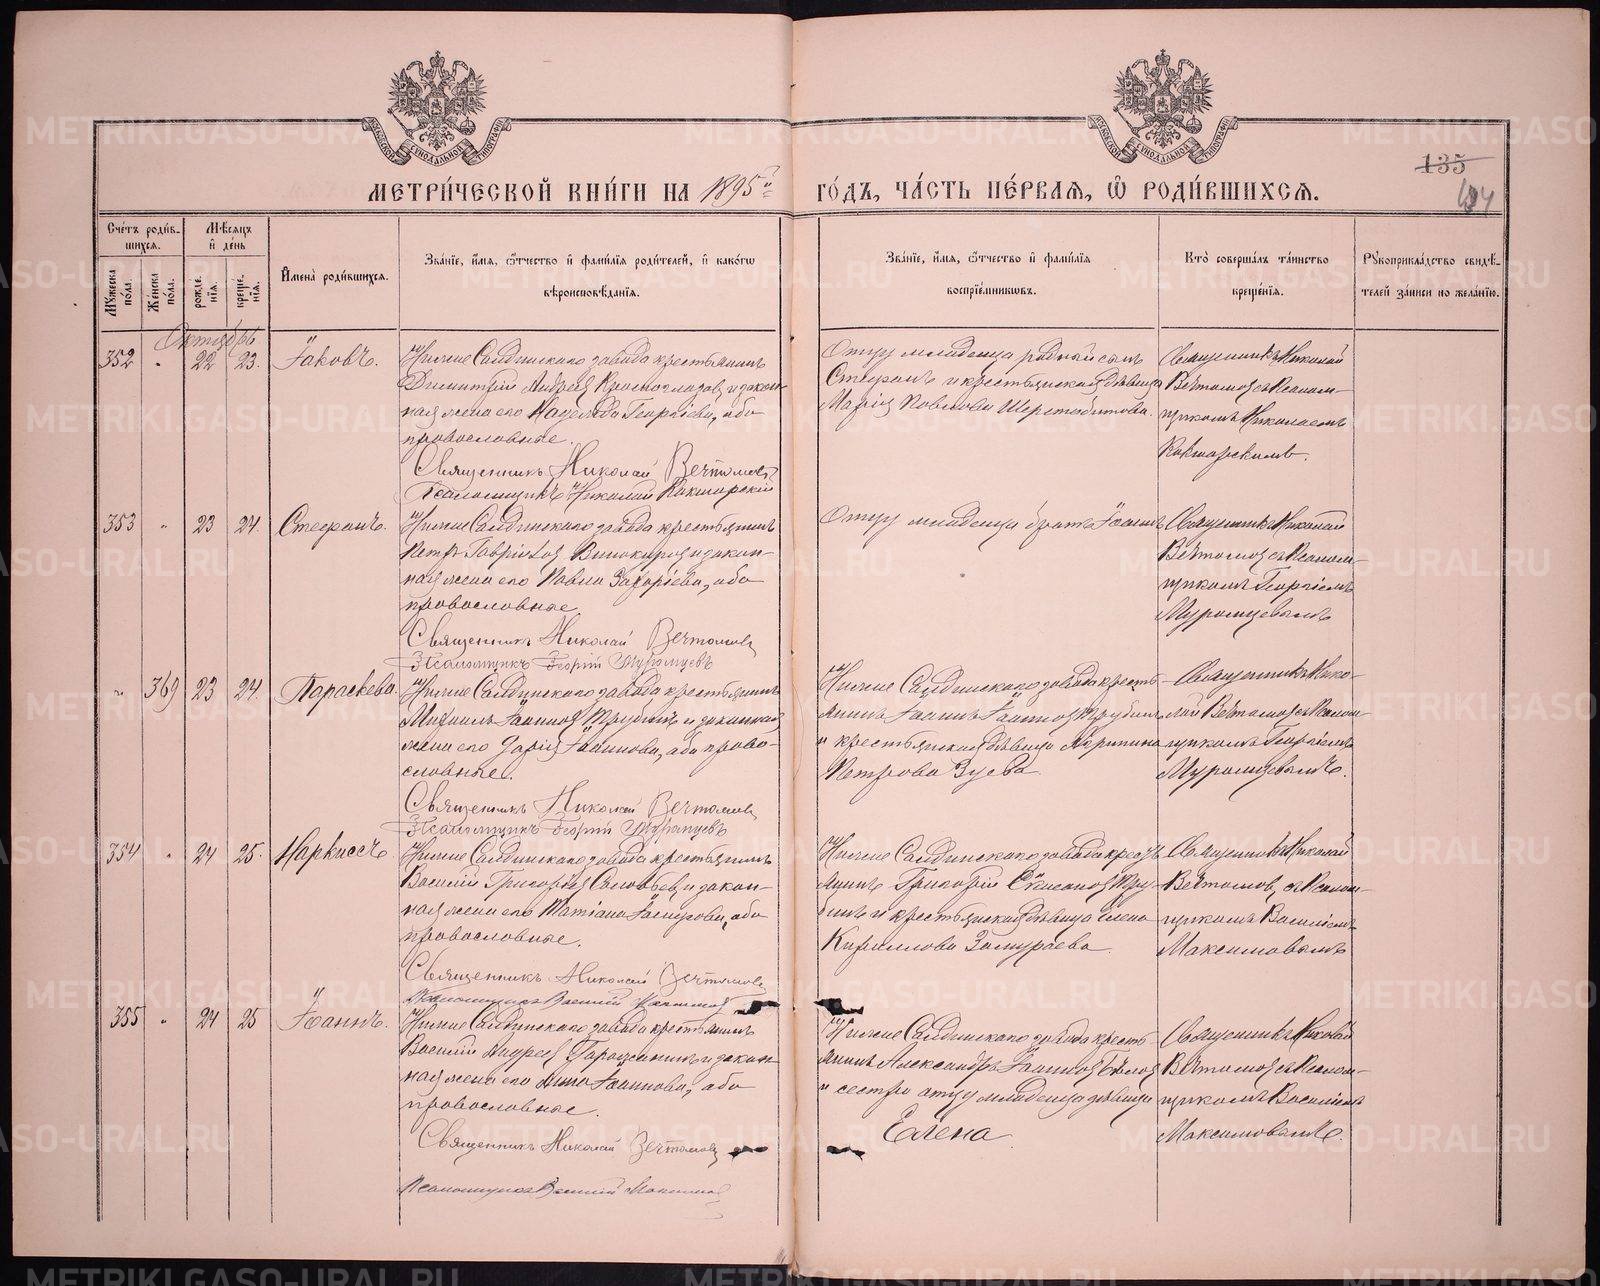 МЕТРИ́ЧЕСКОЙ КНИ́ГИ НА 1895й
ГО́ДЪ, ЧА́СТЬ ПЕ́РВАЯ, Ѿ РОДИ́ВШИХСЯ.
135
Сче́тъ роди́в-
шихся.
Мѣ́сяцъ
и де́нь
Мꙋжеска
по́ла.
Же́нска
по́ла.
рожде́-
нїя.
креще́-
нїя.
Имена̀ роди́вшихся.
Зва́нїе, и́мя, ѻ́тчество и фами́лїя роди́телей, и како́гѡ
вѣроисповѣ́данїя.
Зва́нїе, и́мя, ѻ́тчество и фами́лїя
воспрїе́мникѡвъ.
Кто̀ соверша́лъ та́инство
креще́нїя.
Рꙋкоприкла́дство свидѣ́-
телей за́писи по жела́нїю.
Октябрь
352 " 22 23. Іаковъ.
Нижне Салдинскаго завода крестьянинъ
Димитрій Андреев Красноглазов, и закон-
ная жена его Надежда Георгіева, оба
православные.
Священникъ Николай Вечтомов
Псаломщикъ Николай Кокшарскій
Отцу младенца родный сын
Стефанъ и крестьянская дѣвица
Марія Павлова Шерстобитова.
Священникъ Николай
Вечтомов съ Псалом-
щикомъ Николаемъ
Кокшарскимъ.
353 " 23 24. Стефанъ.
Нижне Салдинскаго завода крестьянинъ
Петръ Гавріилов Винокуров и закон-
ная жена его Павла Захаріева, оба
православные
Священникъ Николай Вечтомов
Псаломщикъ Георгій Муромцевъ
Отцу младенца братъ Іоаннъ
Священникъ Николай
Вечтомов съ Псалом-
щикомъ Георгіемъ
Муромцевымъ
" 369 23 24. Параскева.
Нижне Салдинскаго завода крестьянинъ
Михаилъ Іоаннов Трубинъ и законная
жена его Дарія Іоаннова, оба право-
славные.
Священникъ Николай Вечтомов
Псаломщикъ Георгій Муромцевъ
Нижне Салдинскаго завода кресть-
янинъ Іоаннъ Іоаннов Трубинъ
и крестьянская дѣвица
Петрова Зуева
Священникъ Нико-
лай Вечтомов съ Псалом-
щикомъ Георгіемъ
Муромцевымъ.
354 " 24 25. Наркиссъ
Нижне Салдинскаго завода крестьянинъ
Василій Григорьев Соловьев, и закон-
ная жена его Татіана оба
православные.
Священникъ Николай Вечтомов
Псаломщикъ Василій Максимов
Нижне Салдинскаго завода кресть-
янинъ Григорій Тру-
бинъ и крестьянская дѣвица Елена
Кириллова Замураева.
Священникъ Николай
Вечтомов, съ Псалом-
щикомъ Василіемъ
Максимовымъ
355 " 24 25 Іоаннъ.
Нижне Салдинскаго завода крестьянинъ
Василій Андреев и закон-
ная жена его Анна Іоаннова, оба
православные.
Священникъ Николай Вечтомов
Псаломщикъ Василій Максимов
Нижне Салдинскаго завода кресть-
янинъ Александръ Іоаннов Бѣлов
и сестра отцу младенца дѣвица
Елена
Священникъ Николай
Вечтомов съ Псалом-
щикомъ Василіемъ
Максимовымъ.
METRIKI.GASO-URAL.RU